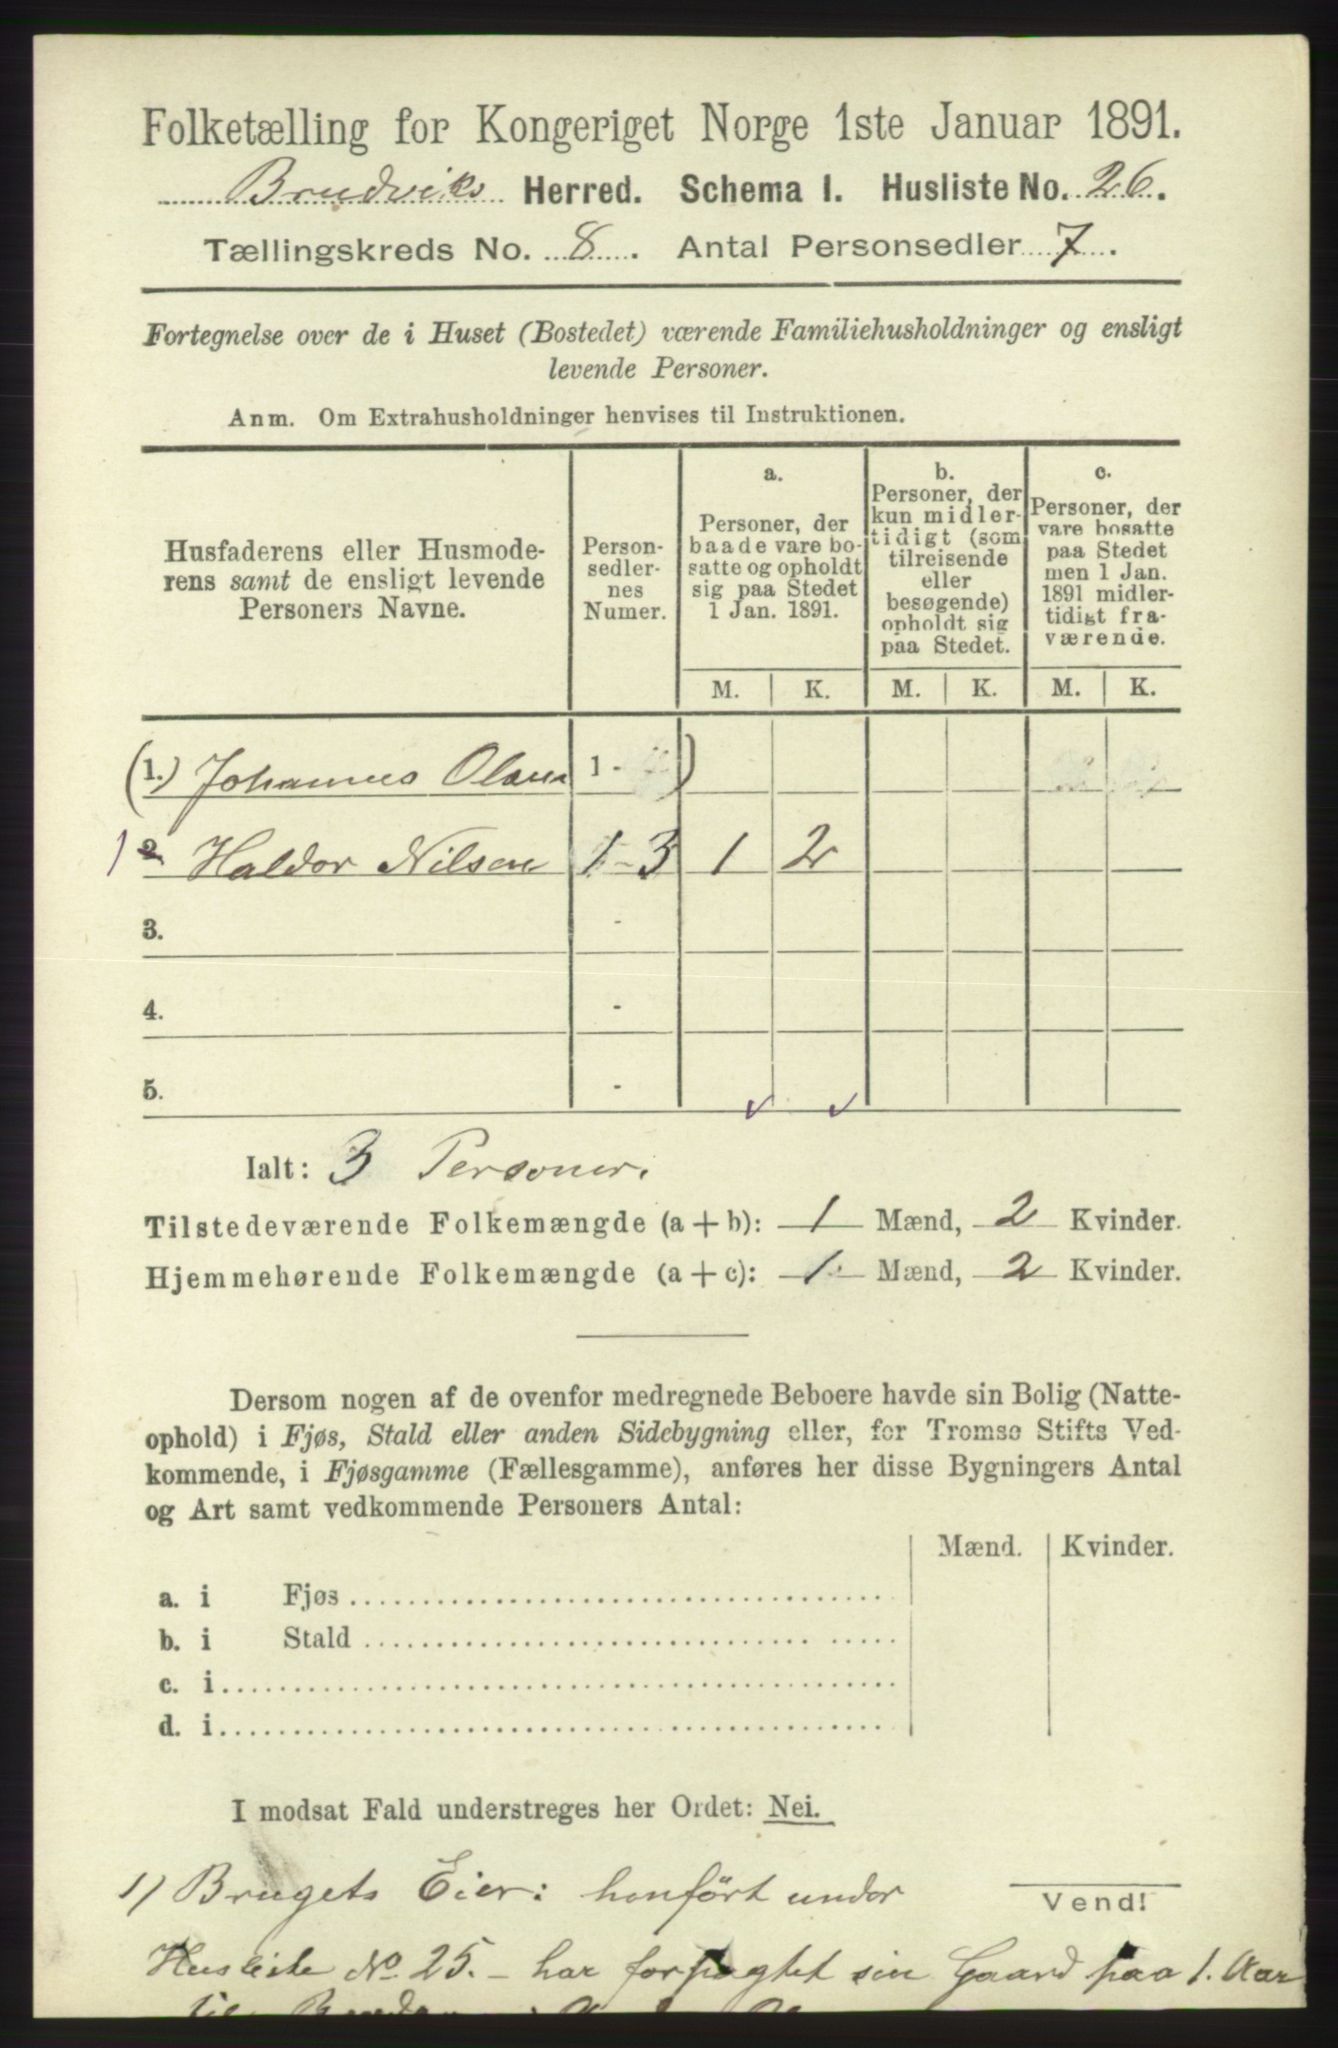 Folketælling for Kongeriget Norge 1ste Januar 1891.
Brudviks Herred. Schema I. Husliste No. 26.
Tællingskreds No. 8. Antal Personsedler 7.
Fortegnelse over de i Huset (Bostedet) værende Familiehusholdninger og ensligt
levende Personer.
Anm. Om Extrahusholdninger henvises til Instruktionen.
Husfaderens eller Husmode-
rens samt de ensligt levende
Personers Navne.
Person-
sedler-
nes
Numer.
a.
Personer, der
baade vare bo-
satte og opholdt
sig paa Stedet
1 Jan. 1891.
b.
Personer, der
kun midler-
tidigt (som
tilreisende
eller
besøgende)
opholdt sig
paa Stedet.
c.
Personer, der
vare bosatte
paa Stedet
men 1 Jan.
1891 midler-
tidigt fra-
værende.
M. K. M. K. M. K.
(1.) Johannes Olsen 1 - )
1 2. Haldor Nilsen 1 - 3 1 2
3. -
4. -
5. -
Ialt: 3 Personer.
Tilstedeværende Folkemængde (a + b): 1 Mænd, 2 Kvinder.
Hjemmehørende Folkemængde (a + c): 1 Mænd, 2 Kvinder.
Dersom nogen af de ovenfor medregnede Beboere havde sin Bolig (Natte-
ophold) i Fjøs, Stald eller anden Sidebygning eller, for Tromsø Stifts Ved-
kommende, i Fjøsgamme (Fællesgamme), anføres her disse Bygningers Antal
og Art samt vedkommende Personers Antal:
Mænd. Kvinder.
a. i Fjøs
b. i Stald
c. i
d. i
I modsat Fald understreges her Ordet: Nei.
1) Brugets Eier: henført under
Vend!
Husliste No 25. - har forpagtet sin Gaard paa 1. Aar
til